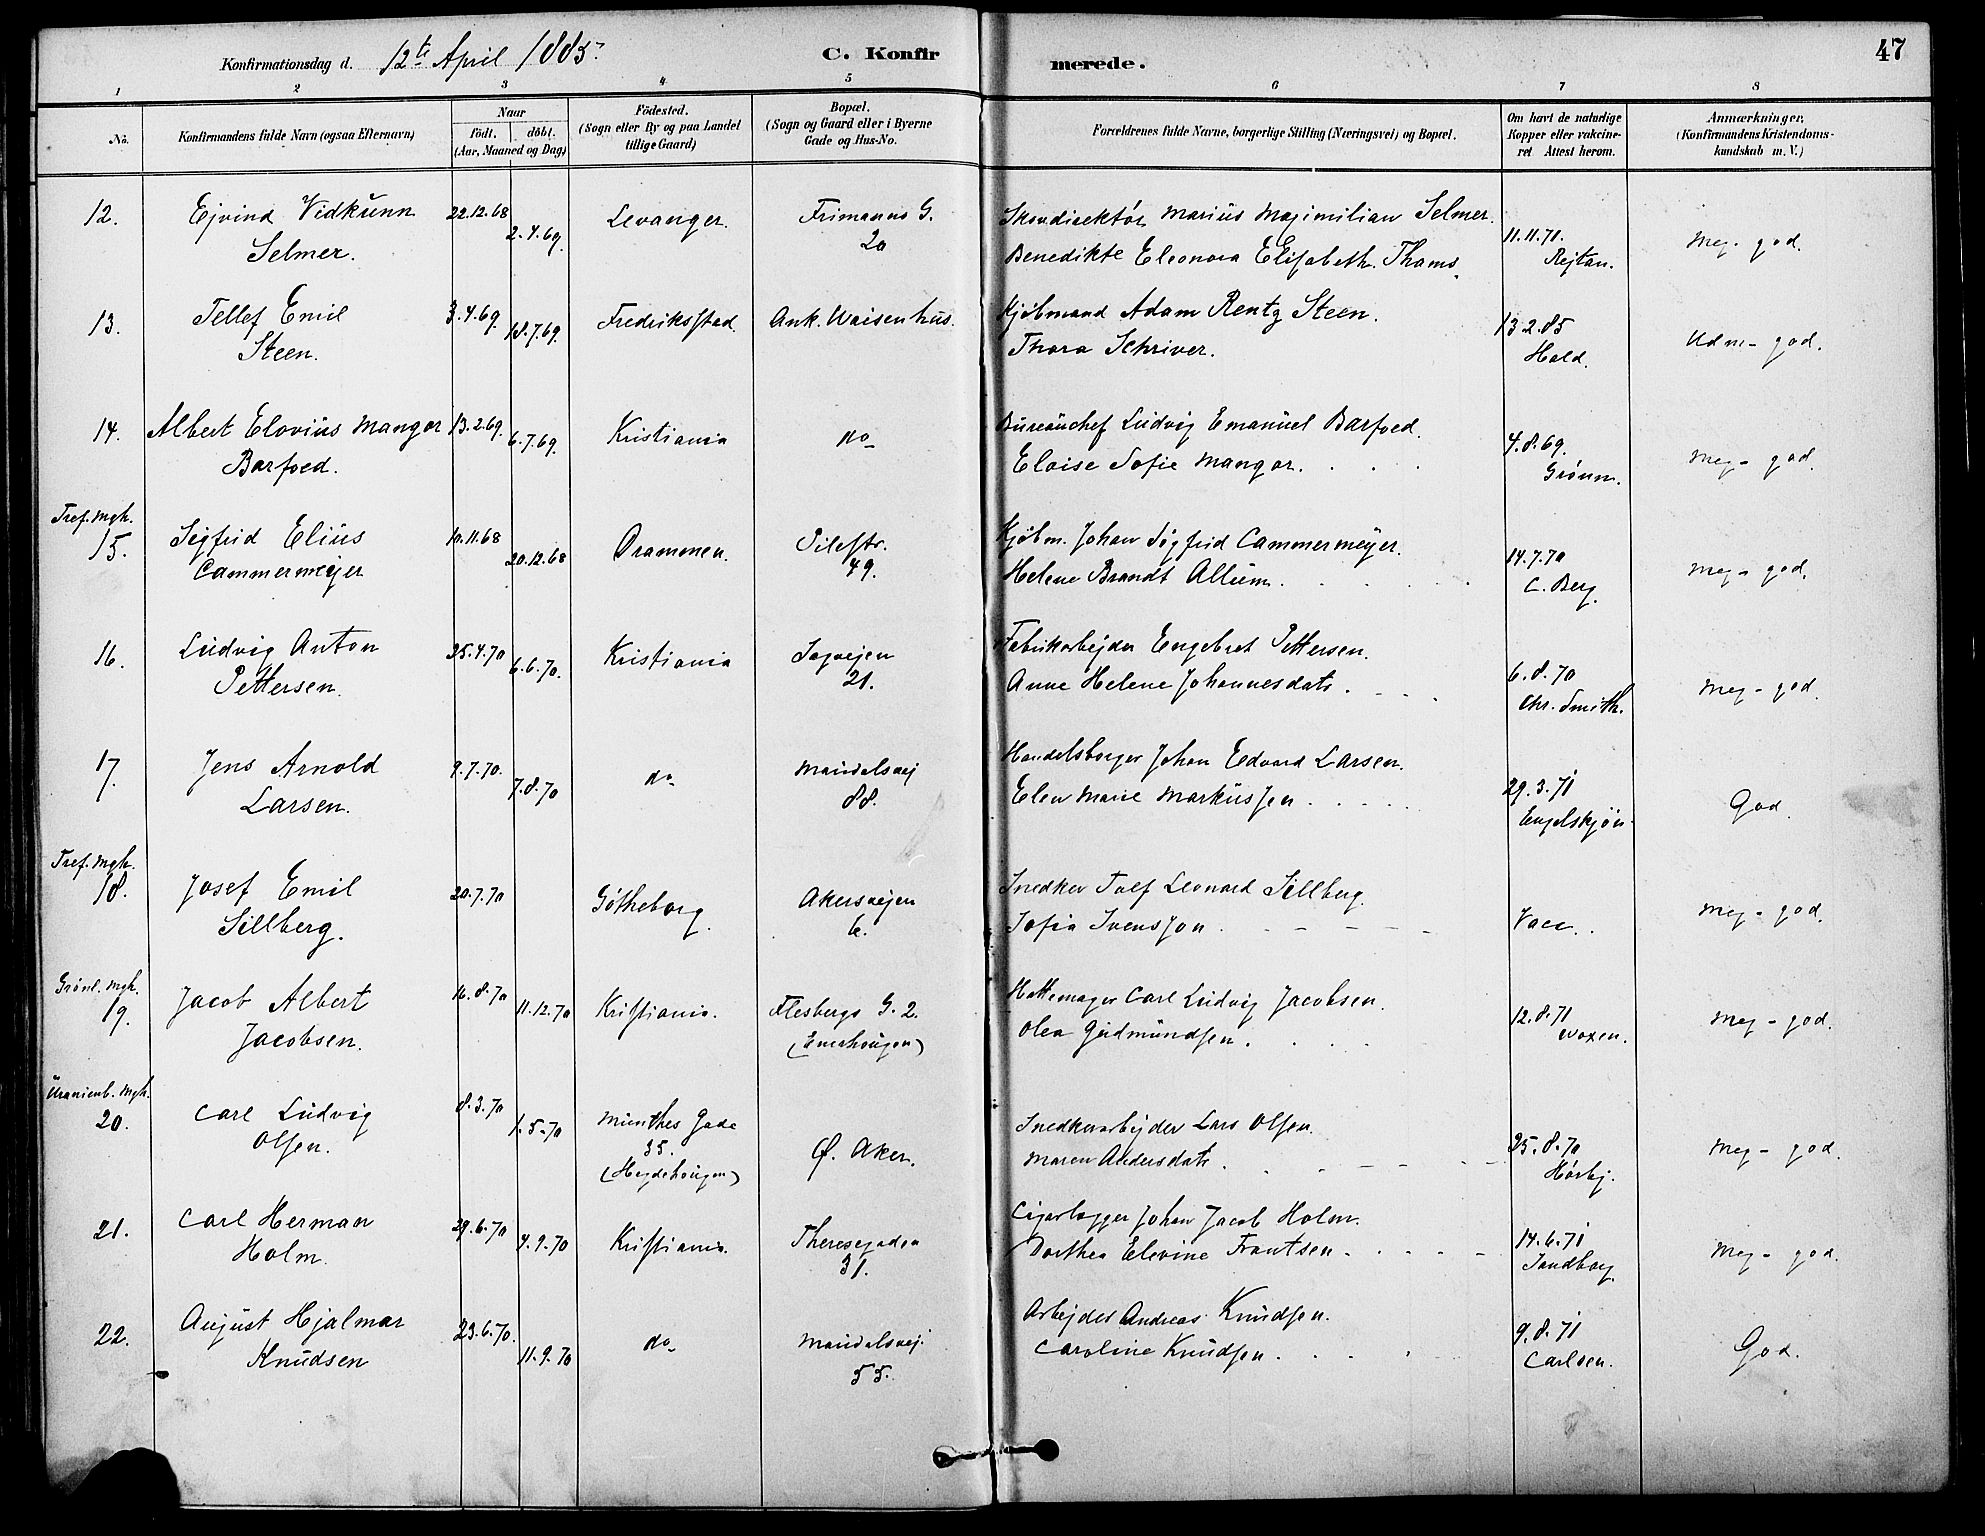 Konfirmationsdag d. 12te April 1885. C. Konfirmerede. 47
1 2 3 4 5 6 7 8
No. Konfirmandens fulde Navn (ogsaa Efternavn) Naar födt. döbt. (Aar, Maaned og Dag) Födested. (Sogn eller By og paa Landet tillige Gaard) Bopæl. (Sogn og Gaard eller i Byerne Gade og Hus-No. Forældrenes fulde Navne, borgerlige Stilling (Næringsvei) og Bopæl. Om havt de naturlige Kopper eller vakcineret Attest herom. Anmærkninger, (Konfirmandens Kristendomskundskab m. V.)
12. Ejvind Vidkunn 22.12.68 Levanger. Frimanns G. Skovdirektör Marius Maximilian Selmer.
Selmer. 2.4.69. 20 Benedikte Eleonora Elisabeth Thams 11.11.71. Rejtan. Meg. god.
13. Tellef Emil 3.4.69. Fredriksstad. Ank. Waisenhus. Kjöbmand Adam Rentz Steen.
Steen. 18.7.69. Thora Schriver. 13.2.85 Hald. Udm- god.
14. Albert Elovius Mangor 13.2.69. Kristiania do Bureauchef Ludvig Emanuel Barfoed.
Barfoed. 6.7.69. Eloise Sofie Mangor. 4.8.69. Grönn. Meg- god.
Tref. Mgh.
15. Sigfrid Elius 10.11.68 Drammen. Pilestr. Kjöbm. Johan Sigfrid Cammermeyer.
Cammermeyer 20.12.68 49. Helene Brandt Allum. 14.7.70 C. Berg. Meg- god.
16. Ludvig Anton 25.4.70 Kristiania Sagvejen Fabrikarbejder Engebret Pettersen.
Pettersen. 6.6.70. 21. Anne Helene Johannesdatr. 6.8.70 Chr. Smith. Meg- god.
17. Jens Arnold 9.7.70. do Maridalsvej Handelsborger Johan Edvard Larsen.
Larsen. 7.8.70 88. Elen Marie Markussen. 29.3.71 Engelskjön. God.
Tref. Mgh.
18. Josef Emil 20.7.70 Götheborg. Akersvejen Snedker Tolf Leonard Sillberg.
Sillberg. 6. Sofia Svensson. Vacc. Meg- god.
Grönl. Mgh.
19. Jacob Albert 16.8.70 Kristiania. Flesbergs G. 2. Hattemager Carl Ludvig Jacobsen.
Jacobsen. 11.12.70 (Enerhougen) Olea Gudmundsen. 12.8.71 Voxen. Meg- god.
Uranienb. Mgh.
20. Carl Ludvig 8.3.70 Munthes Gade Snedkerarbejder Lars Olsen.
Olsen. 1.5.70 35. (Hegdehougen) Ø. Aker. Maren Andersdatr. 25.8.70 Hörbj. Meg- god.
21. Carl Herman 29.6.70 Kristiania. Theresegaden Cigarlægger Johan Jacob Holm.
Holm. 4.9.70 31. Dorthea Elevine Frantsen. 14.6.71 Sandborg. Meg- god.
22. August Hjalmar 23.6.70. do Maridalsvej. Arbejder Andreas Knudsen.
Knudsen 11.9.70 55. Caroline Knudsen. 9.8.71 Carlsen. God.